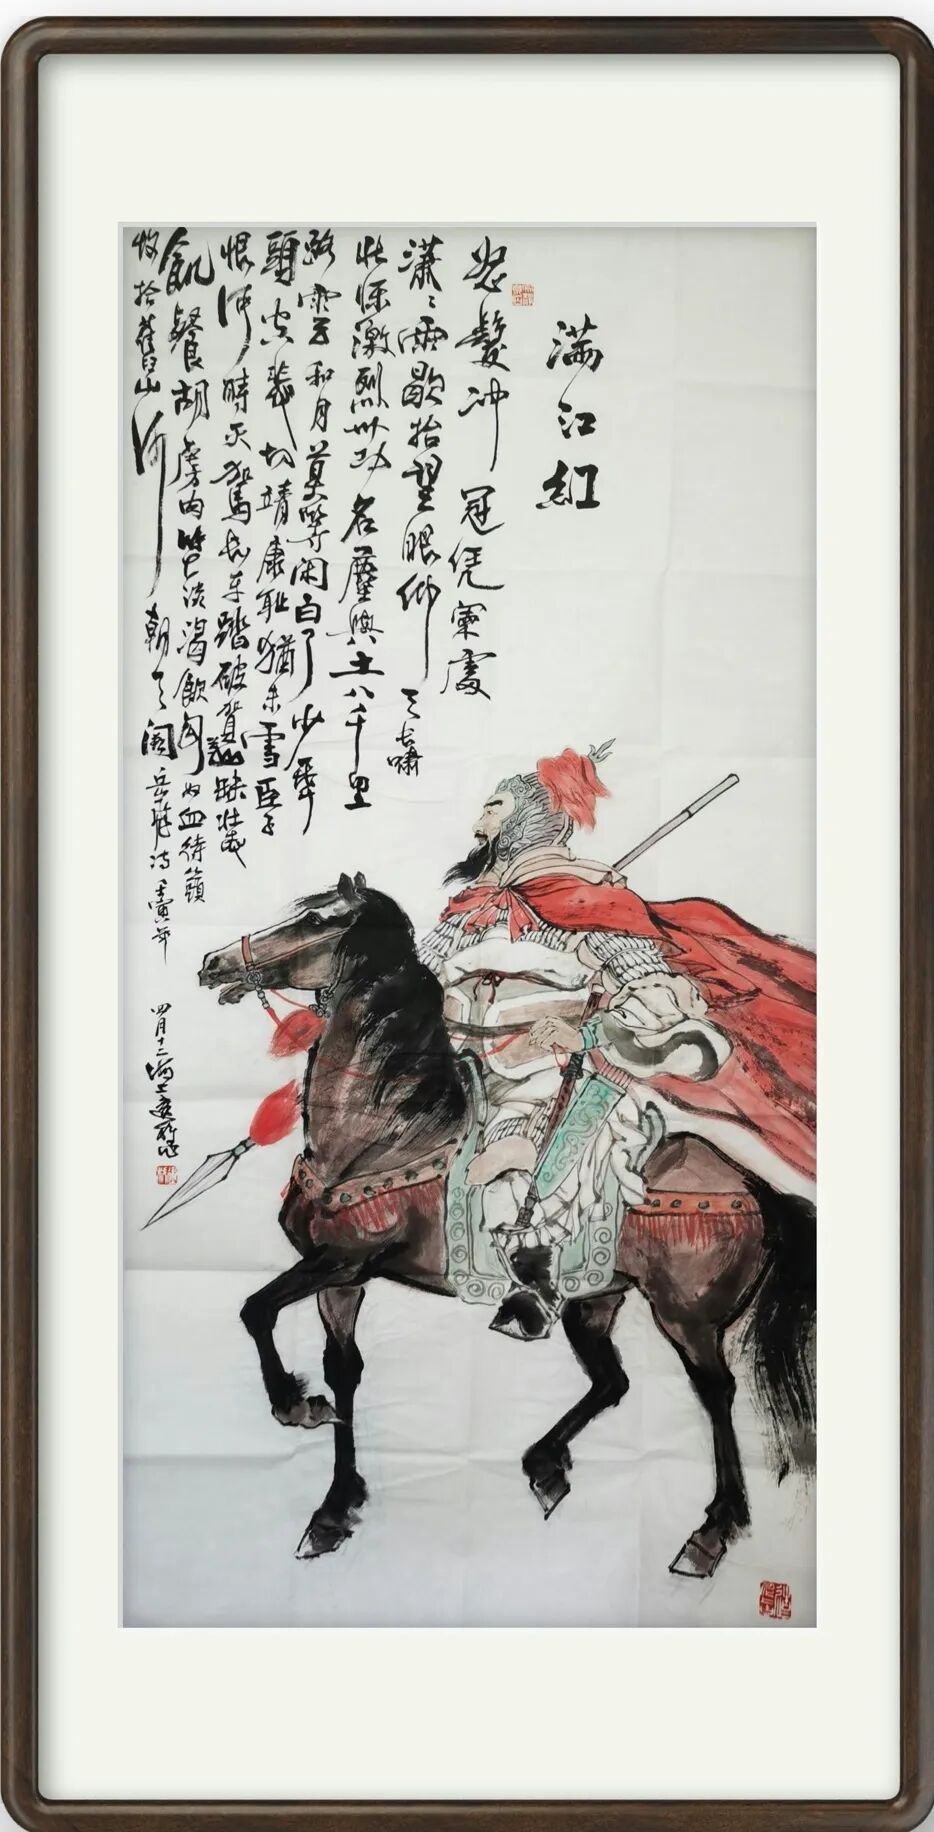 满江红
怒髮冲冠凭栏處
潇〻雨歇抬望眼仰天长啸
壮怀激烈卅功名塵與土八千里
路雲和月莫等闲白了少年
頭空悲切靖康耻猶未雪臣子
恨何時灭驾长车踏破賀蘭山缺壮志
飢餐胡虏肉笑谈渴飲匈奴血待從頭
收拾舊山河朝天阙岳飛诗壬寅年
四月十二